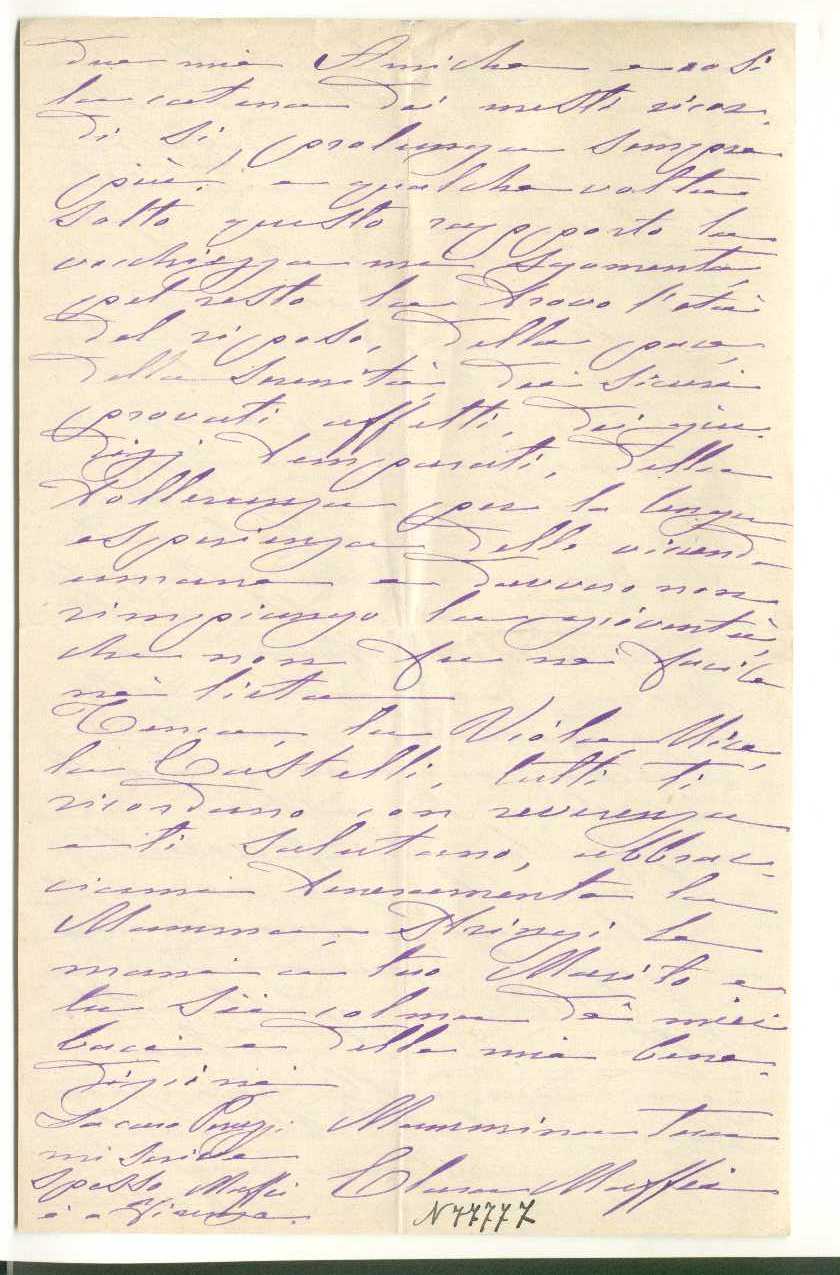 due mie Amiche e così
la catena dei mesti ricor-
di si prolunga sempre
più! e qualche volta
sotto questo rapporto la
vecchiezza mi sgomenta,
pel resto la trovo l'età
del riposo, della pace,
della serenità, dei sicuri
provati affetti, dei giu-
dizi temperati, della
tolleranza per la lunga
esperienza delle vicende
umane e davvero non
rimpiango la gioventù,
che non fu nè facile
nè lieta
Tenca, la Viola, Mica,
la Castelli, tutti ti
ricordano con reverenza
e ti salutano, abbrac-
ciami teneramente la
Mamma, Stringi la
mano a tuo Marito e
tu sii colma de' miei
baci e della mia bene-
dizione
Mammina tua
Clara Maffei
La cara Peruzzi
mi scrive
spesso. Maffei
è a Firenze.
N 77777